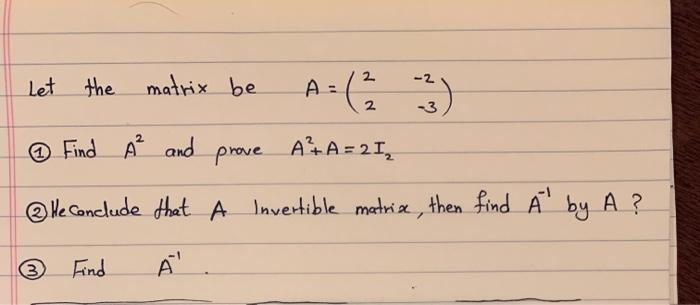 Let the matrix be A = ( 2 -2
2 -3 )
① Find A² and prove A²+A=2I₂
② We Conclude that A Invertible matrix, then find A⁻¹ by A ?
③ Find A⁻¹ .